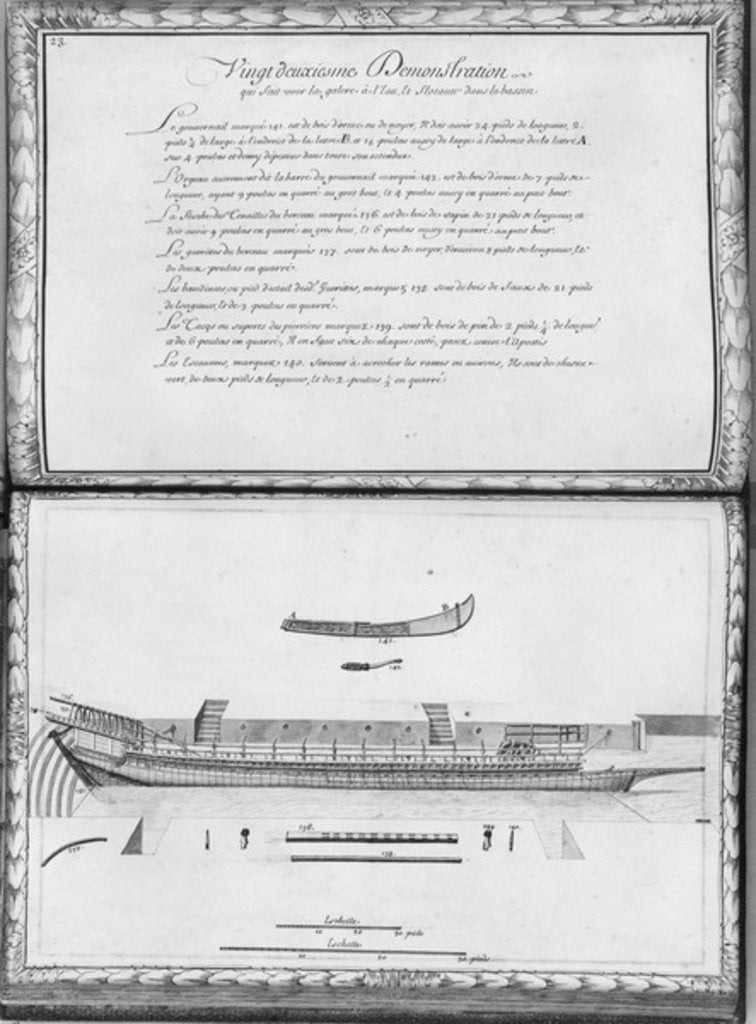 23.
Vingt deuxiesme Demonstration
qui fait voir la galere à l'eau, et flotant dans le bassin.
Le gouvernail marqué 141. est de bois d'orme ou de noyer, Il doit avoir 24 pieds de longueur, 2.
pieds ¼ de large à l'endroit de la lettre B. et 14 poulces aussy de large à l'endroit de la lettre A.
sur 4 poulces et demy d'épaisseur dans toute son estendue.
L'Orgeau autrement dit la barre du gouvernail marqué 142. est de bois d'orme de 7 pieds de
longueur, ayant 9 poulces en quarré au gros bout, et 4 poulces aussy en quarré au petit bout.
La fleche des Tenailles du berceau marquée 136. est de bois de sapin de 21 pieds de longueur, et
doit avoir 9 poulces en quarré au gros bout, et 6 poulces aussy en quarré au petit bout.
Les guerites du berceau marquées 137. sont de bois de noyer, d'environ 8 pieds de longueur, et
de deux poulces en quarré.
Les bandinets ou pied d'estail desd. Guerites, marquez 138. sont de bois de faux de 21 pieds
de longueur, et de 3 poulces en quarré.
Les Tacqs ou suports des pierriers marquez 139. sont de bois de pin de 2 pieds ¼ de longr
et de 6 poulces en quarré, Il en faut six de chaque costé, posez contre l'apostis
Les Escaumes, marquez 140. servent à acrocher les rames ou avirons, Ils sont de chesne
vert, de deux pieds de longueur, et de 2 poulces ½ en quarré.
A
B
141.
142.
136.
137.
138.
139.
140.
138.
Eschelle
10 20 30 pieds
Eschelle
10 20 30 pieds